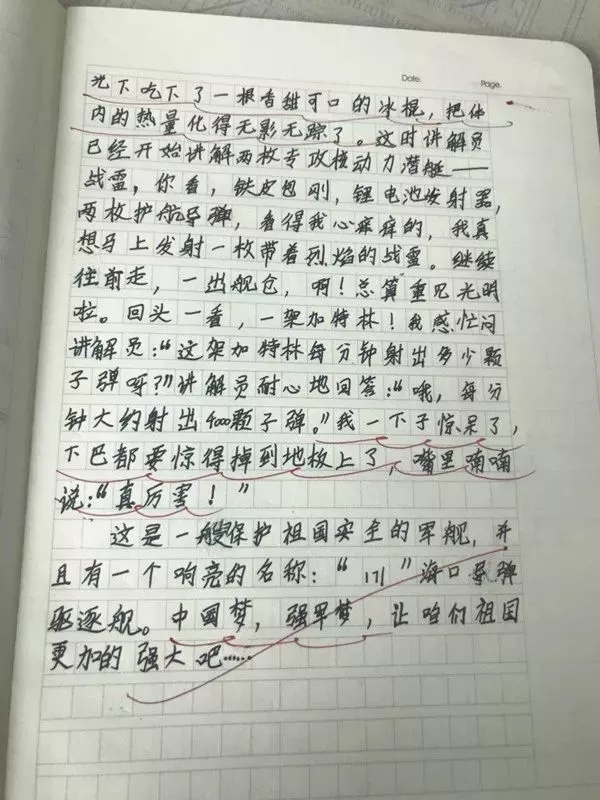 Date. Page.
光下吃下了一根香甜可口的冰棍，把体
内的热量化得无影无踪了。这时讲解员
已经开始讲解两枚专攻核动力潜艇——
战雷，你看，铁皮包刚，锂电池发射器，
两枚护航导弹，看得我心痒痒的，我真
想马上发射一枚带着烈焰的战雷。继续
往前走，一出舰仓，啊！总算重见光明
啦。回头一看，一架加特林！我感忙问
讲解员：“这架加特林每分钟射出多少颗
子弹呀？”讲解员耐心地回答：“哦，每分
钟大约射出4000颗子弹。”我一下子惊呆了，
下巴都要惊得掉到地板上了，嘴里喃喃
说：“真厉害！”
这是一艘保护祖国安全的军舰，并
且有一个响亮的名称：“171”海口导弹
驱逐舰。中國梦，强军梦，让咱们祖国
更加的强大吧……